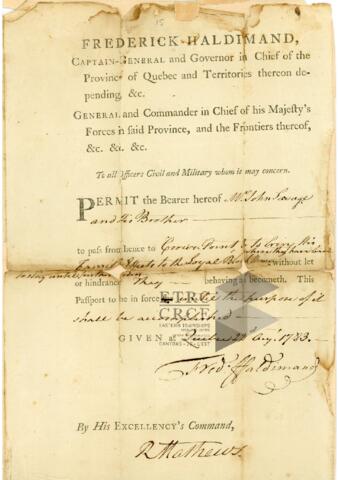 15
FREDERICK HALDIMAND,
CAPTAIN-GENERAL and Governor in Chief of the
Province of Quebec and Territories thereon de-
pending, &c.
GENERAL and Commander in Chief of his Majesty's
Forces in said Province, and the Frontiers thereof,
&c. &c. &c.
To all Officers Civil and Military whom it may concern.
PERMIT the Bearer hereof Mr John Savage
and his Brother
to pass from hence to Crown Point & to bring his
Family & Effects to the Loyal Blocks where they have leave
to stay until further without let
or hindrance they behaving as becometh. This
Passport to be in force until the purpose of it
shall be accomplished
ETRC
CRCE
EASTERN TOWNSHIPS
CANTONS-DE-L'EST
GIVEN at Quebec Augt 1783.
Fred: Haldimand
By His EXCELLENCY's Command,
R Mathews